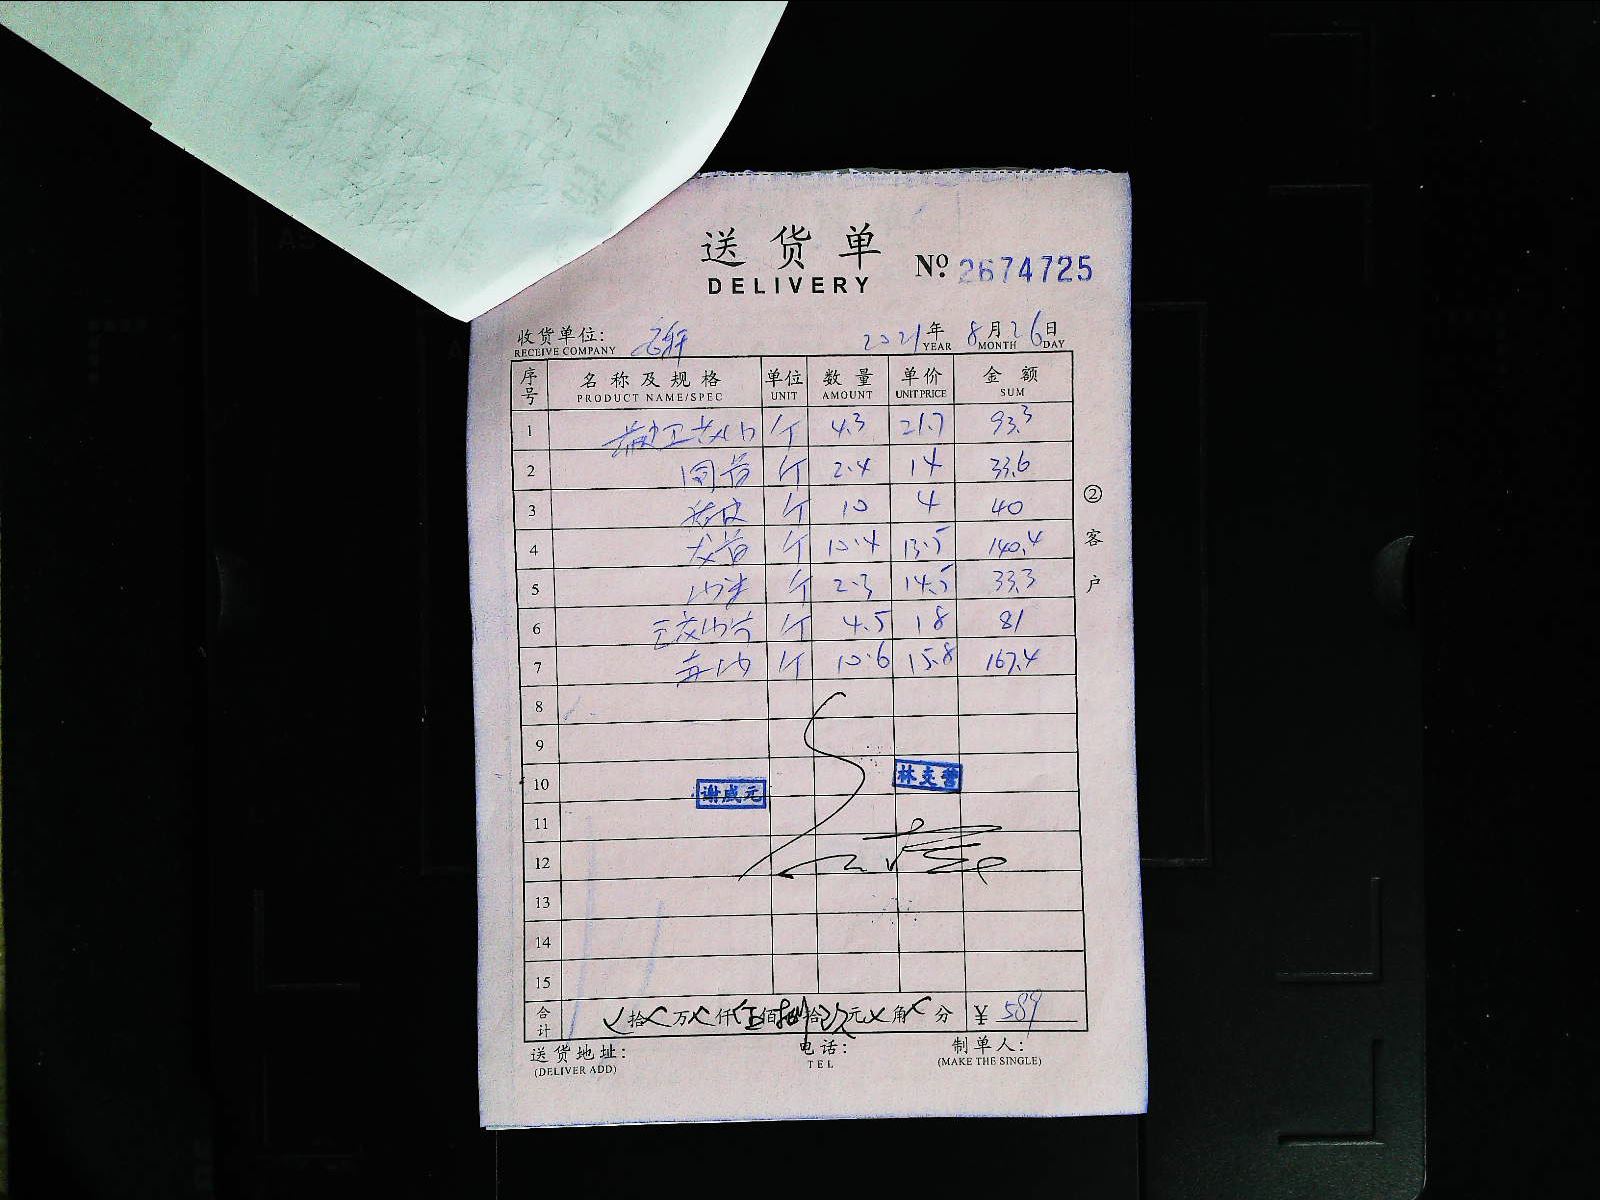 送货单
DELIVERY
№ 2674725
收货单位: 2021年 8月26日
RECEIVE COMPANY YEAR MONTH DAY
序号 名称及规格 单位 数量 单价 金额
PRODUCT NAME/SPEC UNIT AMOUNT UNIT PRICE SUM
1 斤 4.3 21.7 93.3
2 斤 2.4 14 33.6
3 斤 10 4 40
4 斤 10.4 13.5 140.4
5 斤 2.3 14.5 33.3
6 斤 4.5 18 81
7 斤 10.6 15.8 167.4
8
9
10 谢成元 林支营
11
12
13
14
15
合计 拾 万 仟 伍佰 捌拾 元 角 分 ¥ 589
②客户
送货地址: 电话: 制单人:
(DELIVER ADD) TEL (MAKE THE SINGLE)